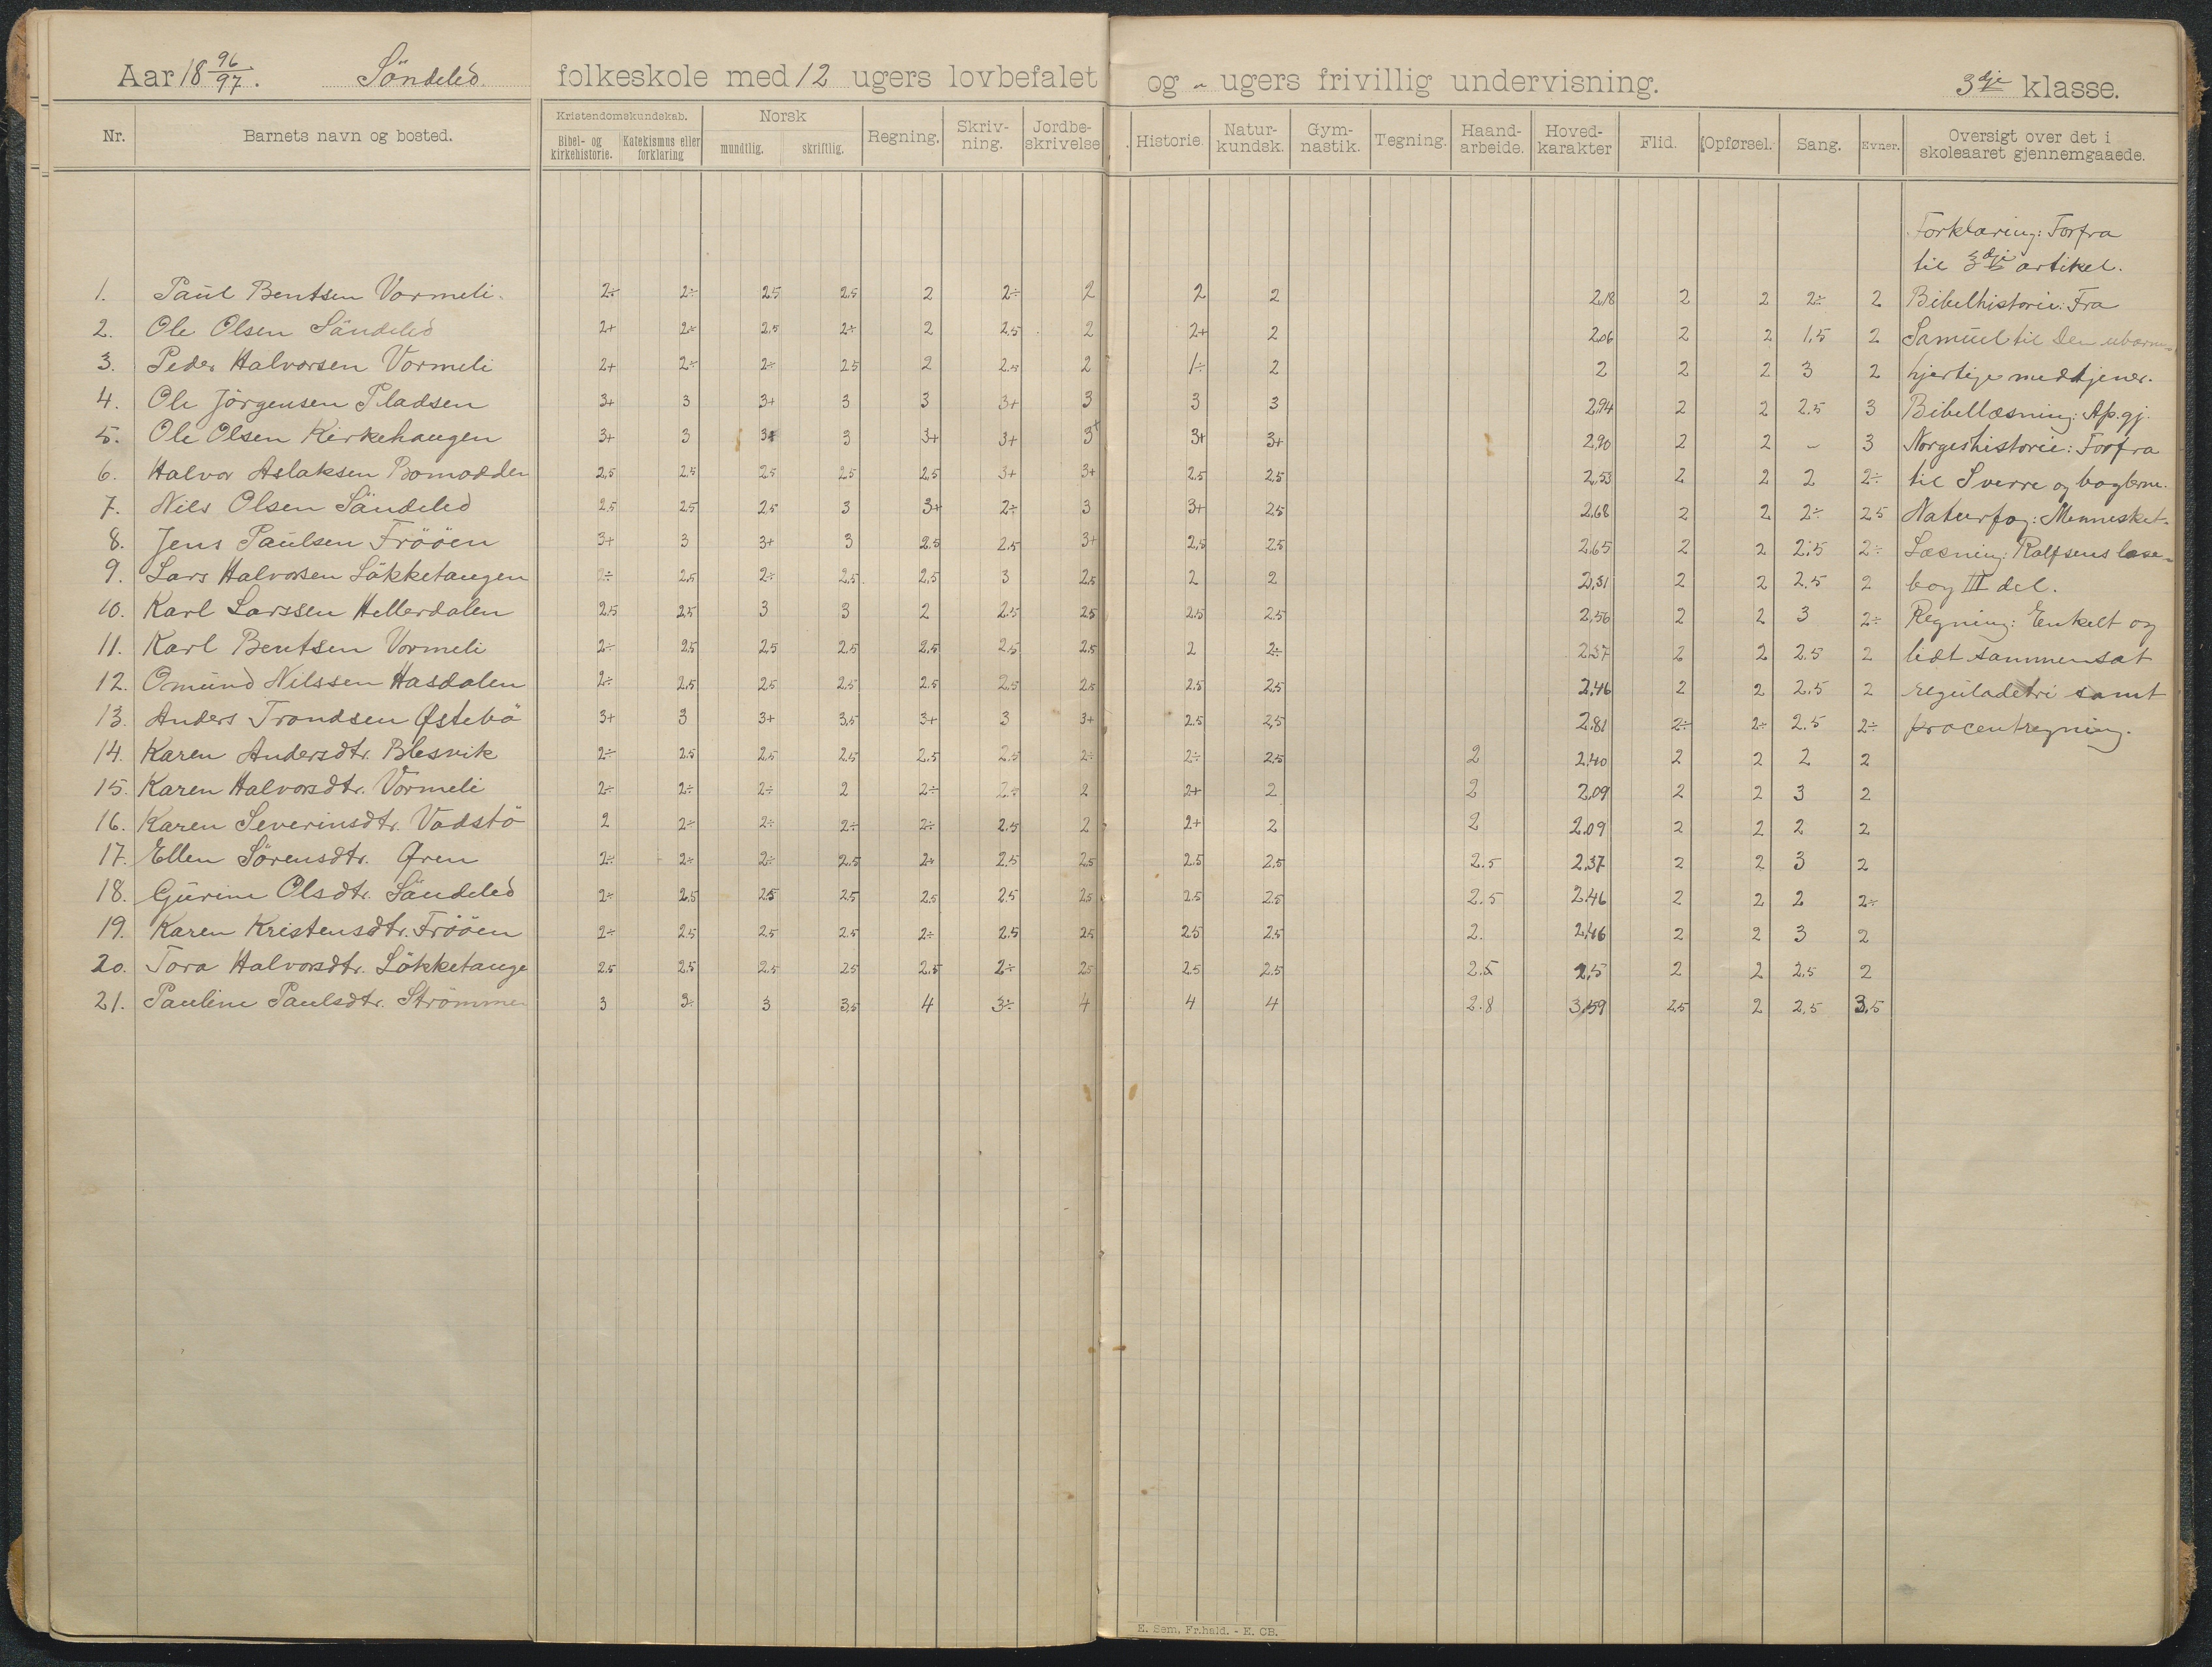 Aar 18 96/97. Söndeled folkeskole med 12 ugers lovbefalet og " ugers frivillig undervisning. 3dje klasse.
Nr. Barnets navn og bosted. Kristendomskundskab. Bibel- og kirkehistorie. Katekismus eller forklaring Norsk mundtlig. skriftlig. Regning. Skriv-ning. Jordbe-skrivelse Historie. Natur-kundsk. Gym-nastik. Tegning. Haand-arbeide. Hoved-karakter Flid. Opførsel. Sang. Evner. Oversigt over det i skoleaaret gjennemgaaede.
Forklaring: Forfra
til 3dje artikel.
1. Paul Bentsen Vormeli. 2÷ 2÷ 2.5 2.5 2 2÷ 2 2 2 2,18 2 2 2÷ 2 Bibelhistorie: Fra
2. Ole Olsen Söndeled 2+ 2÷ 2.5 2÷ 2 2.5 2 2+ 2 2,06 2 2 1,5 2 Samuel til Den ubarm-
3. Peder Halvorsen Vormeli 2+ 2÷ 2÷ 2.5 2 2.5 2 1÷ 2 2 2 2 3 2 hjertige medtjener.
4. Ole Jörgensen Pladsen 3+ 3 3+ 3 3 3+ 3 3 3 2,94 2 2 2.5 3 Bibellæsning: Ap.gj.
5. Ole Olsen Kirkehaugen 3+ 3 3+ 3 3+ 3+ 3+ 3+ 3+ 2,90 2 2 – 3 Norgeshistorie: Forfra
6. Halvor Aslaksen Bomodden 2,5 2.5 2.5 2.5 2,5 3+ 3+ 2.5 2.5 2,53 2 2 2 2÷ til Sverre og baglerne.
7. Nils Olsen Söndeled 2.5 2.5 2.5 3 3+ 2÷ 3 3+ 2.5 2,68 2 2 2÷ 2.5 Naturfag: Mennesket.
8. Jens Paulsen Fröóen 3+ 3 3+ 3 2.5 2.5 3+ 2,5 2.5 2,65 2 2 2,5 2÷ Læsning: Rolfsens læse-
9. Lars Halvorsen Lökketangen 2÷ 2.5 2÷ 2,5 2,5 3 2,5 2 2 2,31 2 2 2.5 2 bog III del.
10. Karl Larssen Hellerdalen 2.5 2.5 3 3 2 2.5 2.5 2.5 2.5 2,56 2 2 3 2÷ Regning: Enkelt og
11. Karl Bentsen Vormeli 2÷ 2.5 2.5 2.5 2.5 2.5 2.5 2 2÷ 2,37 2 2 2.5 2 lidt sammensat
12. Omund Nilssen Hasdalen 2÷ 2.5 2.5 2.5 2.5 2.5 2.5 2.5 2.5 2,46 2 2 2.5 2 reguladetri samt
13. Anders Trondsen Østebö 3+ 3 3+ 3,5 3+ 3 3+ 2.5 2,5 2,81 2÷ 2÷ 2.5 2÷ procentregning.
14. Karen Andersdtr. Blesvik 2÷ 2.5 2.5 2.5 2,5 2.5 2÷ 2÷ 2.5 2 2,40 2 2 2 2
15. Karen Halvorsdtr. Vormeli 2÷ 2÷ 2÷ 2 2÷ 2÷ 2 2+ 2 2 2,09 2 2 3 2
16. Karen Severinsdtr. Vadstö 2 2÷ 2÷ 2÷ 2÷ 2.5 2 2+ 2 2 2,09 2 2 2 2
17. Ellen Sörensdtr. Øren 2÷ 2÷ 2÷ 2.5 2÷ 2,5 2,5 2.5 2.5 2.5 2,37 2 2 3 2
18. Gurine Olsdtr. Söndeled 2÷ 2,5 2.5 2.5 2.5 2.5 2.5 2.5 2.5 2.5 2,46 2 2 2 2÷
19. Karen Kristensdtr. Fröóen 2÷ 2.5 2.5 2.5 2÷ 2.5 2.5 2.5 2.5 2. 2,46 2 2 3 2
20. Tora Halvorsdtr. Lökketange 2.5 2.5 2.5 2.5 2.5 2÷ 2.5 2.5 2.5 2.5 2,5 2 2 2.5 2
21. Pauline Paulsdtr. Strömmen 3 3÷ 3 3,5 4 3÷ 4 4 4 2.8 3,59 2,5 2 2,5 3,5
E. Sem, Fr.hald. - E. CB.